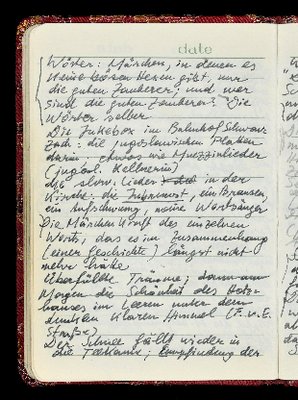 date
Wörter: Märchen, in denen es
keine bösen Hexen gibt, nur
die guten Zauberer; und wer
sind die guten Zauberer? Die
Wörter selber
Die Jukebox im Bahnhof Schwarz-
ach: die jugoslawischen Platten
darin: etwas wie Muezzinlieder
(jugosl. Kellnerin)
die slow. Lieder in der
Kirche: die Inbrunst, ein Brausen
ein Aufschwung, meine Wortsänger
Die Märchen Kraft des einzelnen
Worts, das es im Zusammenhang
(einer Geschichte) längst nicht
mehr hätte
Überfüllte Träume;
Morgen die Schönheit des Holz-
hauses im Leeren unter dem
dunklen klaren Himmel (F.v.E.
Straße)
Der Schnee fällt wieder in
die Teekanne; Empfindung der